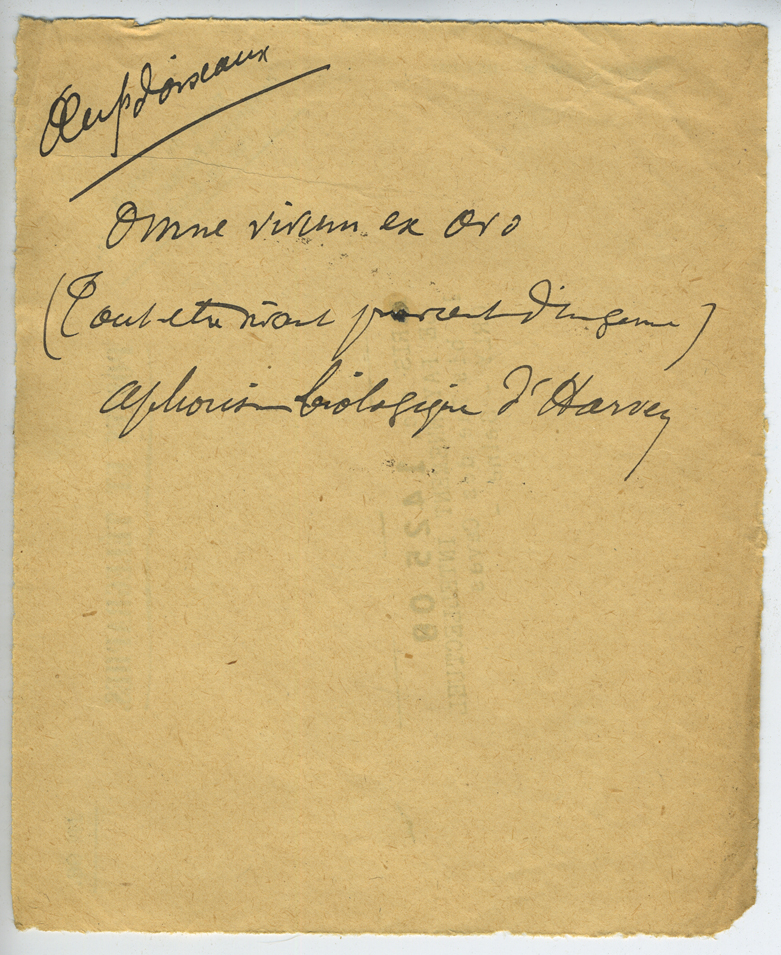 Œufs d'oiseaux
Omne vivum ex ovo
(Tout être vivant provient d'un germe)
aphorisme biologique d'Harvey